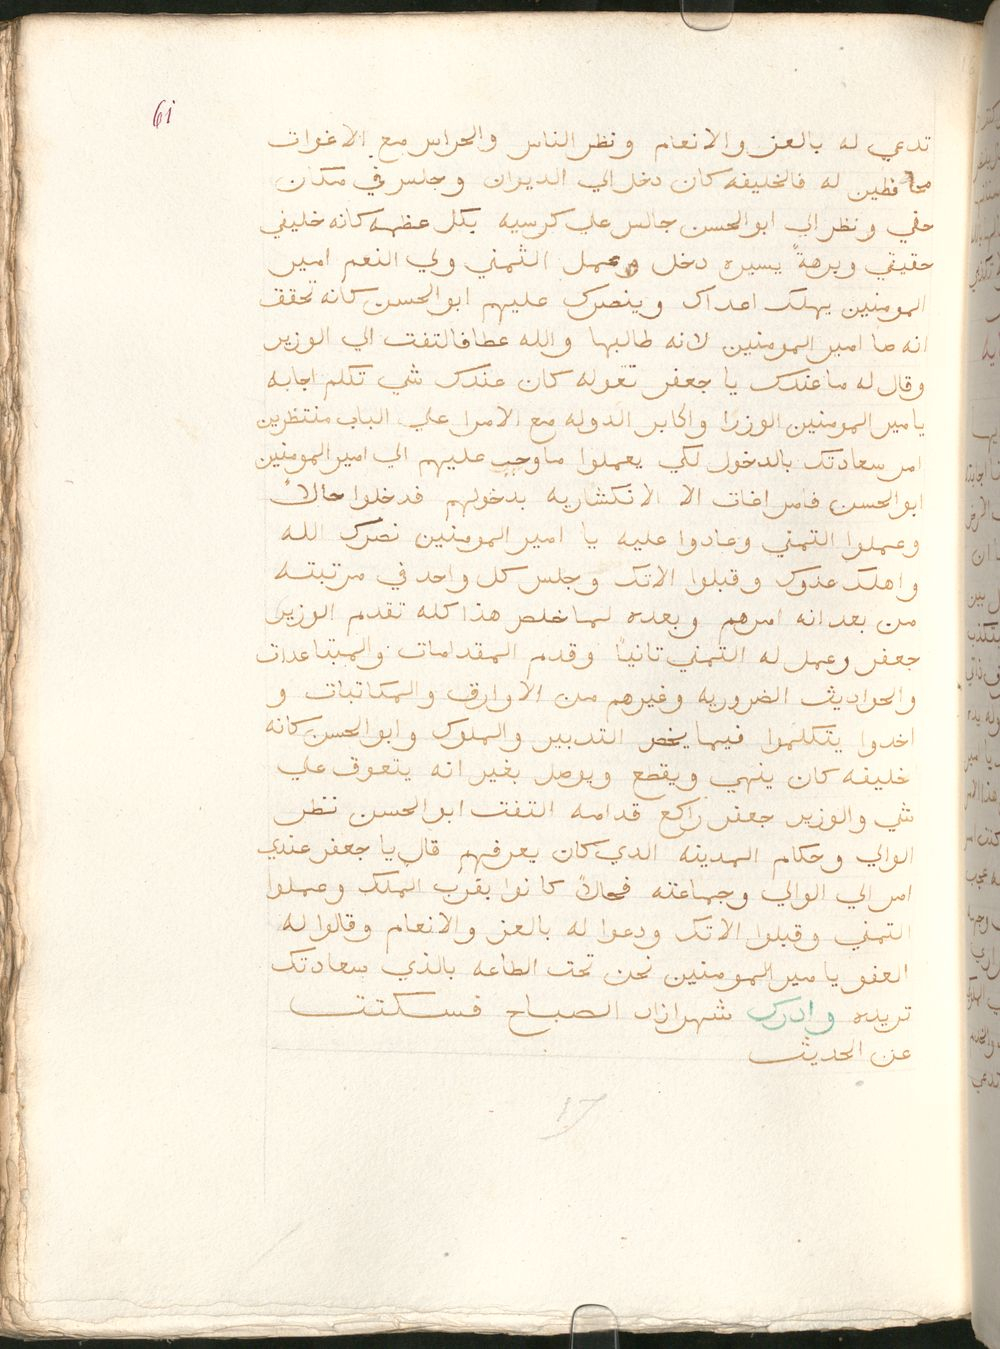 61
تدعي له بالعز والانعام ونظر الناس والحراس مع الاغوات
محافظين له فالخليفه كان دخل الي الديوان وجلس في مكان
خفي ونظر الي ابو الحسن جالس علي كرسيه بكل عظمه كانه خليفي
حقيقي وبرهةً يسيره دخل وعمل التمني ولي النعم امير
المومنين يهلك اعداك وينصرك عليهم ابو الحسن كانه تحقق
انه صا امير المومنين لانه طالبها والله عطا فالتفت الي الوزير
وقال له ما عندك يا جعفر تقوله كان عندك شي تكلم اجابه
يا مير المومنين الوزرا واكابر الدوله مع الامرا علي الباب منتظرين
امر سعادتك بالدخول لكي يعملوا ما وجب عليهم الي امير المومنين
ابو الحسن فامر اغات الا الانكشاريه بدخولهم فدخلوا حالاً
وعملوا التمني وعادوا عليه يا امير المومنين نصرك الله
واهلك عدوك وقبلوا الاتك وجلس كل واحد في مرتبته
من بعد انه امرهم وبعده لما خلص هذا كله تقدم الوزير
جعفر وعمل له التمني تانياً وقدم المقدامات والمبتاعدات
والحراديث الضروريه وغيرهم من الاوارق والمكاتبات و
اخدوا يتكلموا فيما يخص التدبير والملوك وابو الحسن كانه
خليفه كان ينهي ويقطع ويوصل بغير انه يتعوق علي
شي والوزير جعفر راكع قدامه التفت ابو الحسن نظر
الوالي وحكام المدينه الدي كان يعرفهم قال يا جعفر عندي
امر الي الوالي وجماعته فحالاً كانوا بقرب الملك وعملوا
التمني وقبلوا الاتك ودعوا له بالعز والانعام وقالوا له
العفو يا مير المومنين نحن تحت الطاعه بالذي سعادتك
تريده وادرك شهرازاد الصباح فسكتت
عن الحديث
17